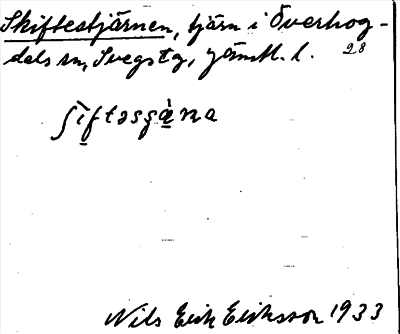 Skiftestjärnen, tjärn i Överhog-
dals sn, Svegs tg, Jämtl. l. 28
ʃìftəsɡä̀na
Nils Erik Eriksson 1933